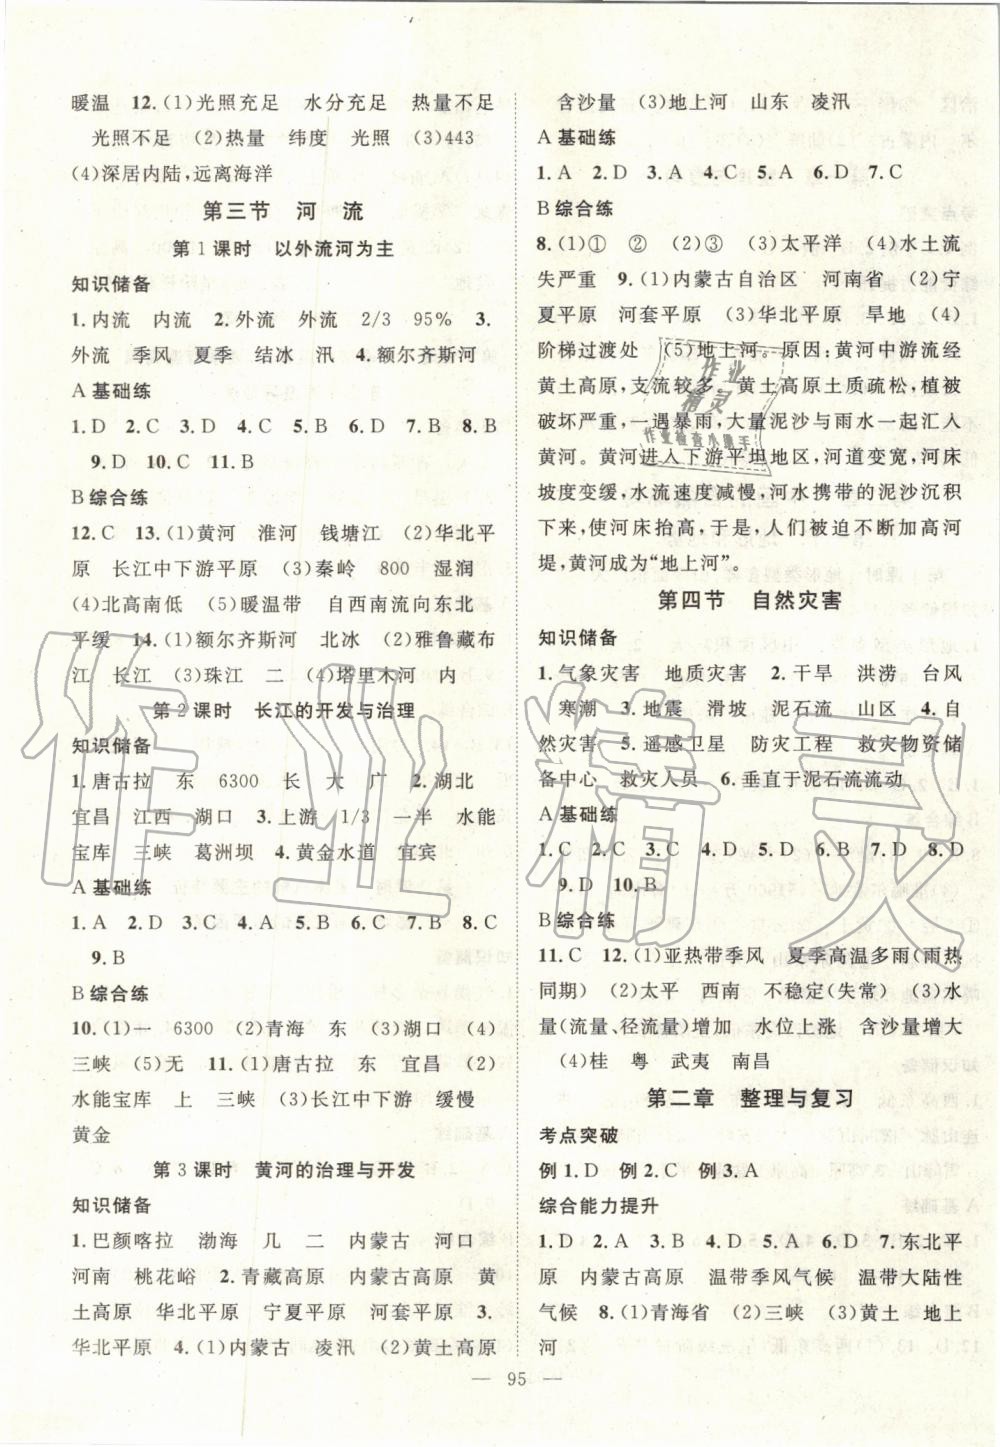 暖温 12.(1)光照充足 水分充足 热量不足
光照不足 (2)热量 纬度 光照 (3)443
(4)深居内陆,远离海洋
第三节 河 流
第1课时 以外流河为主
知识储备
1.内流 内流 2.外流 外流 2/3 95% 3.
外流 季风 夏季 结冰 汛 4.额尔齐斯河
A 基础练
1.D 2.C 3.D 4.C 5.B 6.D 7.B 8.B
9.D 10.C 11.B
B 综合练
12.C 13.(1)黄河 淮河 钱塘江 (2)华北平
原 长江中下游平原 (3)秦岭 800 湿润
(4)北高南低 (5)暖温带 自西南流向东北
平缓 14.(1)额尔齐斯河 北冰 (2)雅鲁藏布
江 长江 (3)珠江 二 (4)塔里木河 内
第2课时 长江的开发与治理
知识储备
1.唐古拉 东 6300 长 大 广 2.湖北
宜昌 江西 湖口 3.上游 1/3 一半 水能
宝库 三峡 葛洲坝 4.黄金水道 宜宾
A 基础练
1.A 2.D 3.C 4.A 5.B 6.C 7.B 8.C
9.B
B 综合练
10.(1)一 6300 (2)青海 东 (3)湖口 (4)
三峡 (5)无 11.(1)唐古拉 东 宜昌 (2)
水能宝库 上 三峡 (3)长江中下游 缓慢
黄金
第3课时 黄河的治理与开发
知识储备
1.巴颜喀拉 渤海 几 二 内蒙古 河口
河南 桃花峪 2.青藏高原 内蒙古高原 黄
土高原 华北平原 宁夏平原 河套平原 3.
华北平原 4.(1)内蒙古 凌汛 (2)黄土高原
含沙量 (3)地上河 山东 凌汛
A 基础练
1.A 2.D 3.A 4.C 5.A 6.D 7.C
B 综合练
8.(1)① ② (2)③ (3)太平洋 (4)水土流
失严重 9.(1)内蒙古自治区 河南省 (2)宁
夏平原 河套平原 (3)华北平原 旱地 (4)
阶梯过渡处 (5)地上河。原因:黄河中游流经
黄土高原,支流较多,黄土高原土质疏松,植被
破坏严重,一遇暴雨,大量泥沙与雨水一起汇入
黄河。黄河进入下游平坦地区,河道变宽,河床
坡度变缓,水流速度减慢,河水携带的泥沙沉积
下来,使河床抬高,于是,人们被迫不断加高河
堤,黄河成为“地上河”。
第四节 自然灾害
知识储备
1.气象灾害 地质灾害 2.干旱 洪涝 台风
寒潮 3.地震 滑坡 泥石流 山区 4.自
然灾害 5.遥感卫星 防灾工程 救灾物资储
备中心 救灾人员 6.垂直于泥石流流动
A 基础练
1.C 2.C 3.C 4.D 5.D 6.B 7.D 8.D
9.D 10.B
B 综合练
11.C 12.(1)亚热带季风 夏季高温多雨(雨热
同期) (2)太平 西南 不稳定(失常) (3)水
量(流量、径流量)增加 水位上涨 含沙量增大
(4)桂 粤 武夷 南昌
第二章 整理与复习
考点突破
例 1.D 例 2.C 例 3.A
综合能力提升
1.D 2.A 3.B 4.D 5.D 6.A 7.东北平
原 内蒙古高原 温带季风气候 温带大陆性
气候 8.(1)青海省 (2)三峡 (3)黄土 地上
河
— 95 —
作业
精灵
作业检查小助手
作业精灵